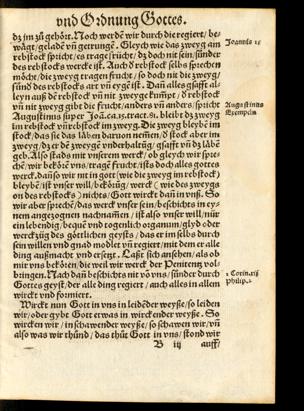 vnd Ordnung Gottes.
dz jm zů gehört. Noch werdē wir durch die regiert/ be-
wågt/ geladē vñ getrungē. Gleych wie das zweyg am
rebstock spricht/ es trage frücht/ dz doch nit sein/ sünder
des rebstocks werck ist. Auch ð rebstock selbs sprechen
möcht/ die zweyg tragen frucht/ so doch nit die zweyg/
sünd des rebstocks art vñ eygē ist. Dañ alles
leyn auß dē rebstock vñ nit zweyge kumpt/ ð rebstock
vñ nit zweyg gibt die frucht/ anders vñ anders/ spricht
Augustinus super Joā. ca. 15. tract. 81. bleibt dz zweyg
im rebstock vñ rebstock im zweyg. Die zweyg bleybē im
stock/ das sie das låbē daruon nemē/ ð stock aber im
zweyg/ dz er dē zweygē vnderhaltūg/ gsafft vñ dz låbē
geb. Also stads mit vnserem werck/ ob gleych wir spre-
chē/ wir bekörē vns/ tragē frucht/ ists doch alles gottes
werck. dañ so wir nit on got (wie die zweyg im rebstock)
bleybē/ ist vnser will/ bekörūg/ werck (wie des zweygs
on des rebstocks) nichts/ Gott wirckt dañ in vnß. So
wir aber sprechē/ das werck vnser sein/ beschichts in ey-
nem angezognen nachnamen/ ist also vnser will/ nür
ein lebendig/ beque vnd togenlich organum/ glyd oder
werckzüg des götlichen geysts/ das er im selbs durch
sein willen vnd gnad modlet vñ regiert/ mit dem er alle
ding außmacht vnd ersetzt. Laßt sich ansehen/ als ob
mir vns bekörē/ die weil wir werck der Penitentz vol-
bringen. Nach dañ beschichts nit vō vns/ sünder durch
Gottes geyst/ der alle ding regiert/ auch alles in allem
wirckt vnd formiert.
Wirckt nun Gott in vns in leidēder weyße/ so leiden
wir/ oder gybt Gott etwas in wirckender weyße. So
wircken wir/ in schawender weyße/ so schawen wir/ vñ
also was wir thünd/ das thůt Gott in vns/ stond wir
B iij auff/
Joannis 15
Augustinus
Exempeln
1 Corint. 15
Philip. 2